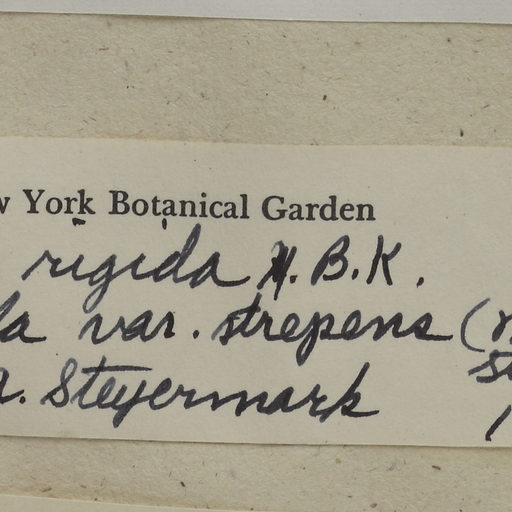 w York Botanical Garden
rigida H.B.K.
la var. strepens (
A. Steyermark